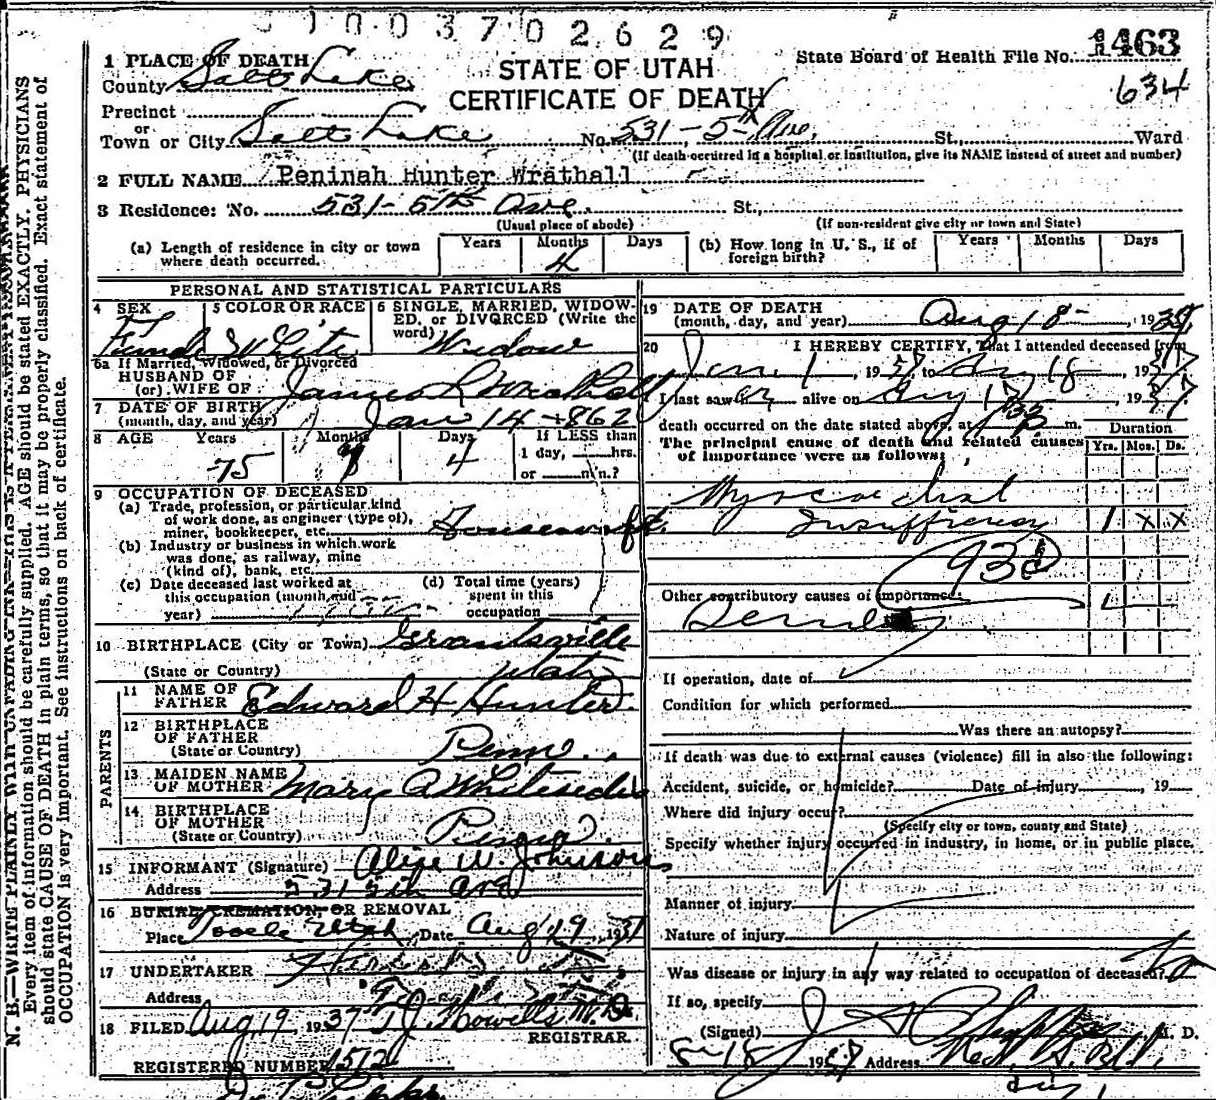 1003702629
1463
State Board of Health File No.
634
STATE OF UTAH
CERTIFICATE OF DEATH
1 PLACE OF DEATH
County Salt Lake
Precinct
or
Town or City Salt Lake No. 531-5th Ave. St., Ward
(If death occurred in a hospital or institution, give its NAME instead of street and number)
2 FULL NAME Peninah Hunter Wrathall
3 Residence: No. 531-5th Ave. St.,
(Usual place of abode) (If non-resident give city or town and State)
(a) Length of residence in city or town where death occurred. Years Months 4 Days
(b) How long in U. S., if of foreign birth? Years Months Days
PERSONAL AND STATISTICAL PARTICULARS
4 SEX
5 COLOR OR RACE White
6 SINGLE, MARRIED, WIDOWED, or DIVORCED (Write the word) Widow
6a If Married, Widowed, or Divorced
HUSBAND OF
(or) WIFE OF James L Wrathall
7 DATE OF BIRTH
(month, day, and year) Jan 14 1862
8 AGE Years 75 Months 7 Days 4
If LESS than
1 day, hrs.
or min.?
9 OCCUPATION OF DECEASED
(a) Trade, profession, or particular kind
of work done, as engineer (type of),
miner, bookkeeper, etc. Housewife
(b) Industry or business in which work
was done, as railway, mine
(kind of), bank, etc.
(c) Date deceased last worked at
this occupation (month and
year)
(d) Total time (years)
spent in this
occupation
10 BIRTHPLACE (City or Town) Grantsville
(State or Country) Utah
PARENTS
11 NAME OF
FATHER Edward H Hunter
12 BIRTHPLACE
OF FATHER
(State or Country) Penn.
13 MAIDEN NAME
OF MOTHER Mary A Whitesides
14 BIRTHPLACE
OF MOTHER
(State or Country) Penna.
15 INFORMANT (Signature) Alice W. Johnson
Address 531 5th Ave
16 BURIAL CREMATION, OR REMOVAL
Place Tooele Utah Date Aug 19, 1937
17 UNDERTAKER
Address
18 FILED Aug 19, 1937 T.J. Howells M.D.
REGISTRAR.
REGISTERED NUMBER 1512
19 DATE OF DEATH
(month, day, and year) Aug 18, 1937
20 I HEREBY CERTIFY, That I attended deceased from
1, 1937 to Aug 18, 1937
I last saw er alive on Aug 17, 1937
death occurred on the date stated above, at m.
The principal cause of death and related causes
of importance were as follows:
Duration
Yrs. Mos. Ds.
Myocardial
Insufficiency 1 x x
Other contributory causes of importance
If operation, date of
Condition for which performed
Was there an autopsy?
If death was due to external causes (violence) fill in also the following:
Accident, suicide, or homicide? Date of injury, 19
Where did injury occur?
(Specify city or town, county and State)
Specify whether injury occurred in industry, in home, or in public place.
Manner of injury
Nature of injury
Was disease or injury in any way related to occupation of deceased? no
If so, specify
(Signed) M. D.
8-18 1937 Address
N. B.—WRITE PLAINLY WITH UNFADING INK—THIS IS A PERMANENT RECORD.
Every item of information should be carefully supplied. AGE should be stated EXACTLY. PHYSICIANS
should state CAUSE OF DEATH in plain terms, so that it may be properly classified. Exact statement of
OCCUPATION is very important. See instructions on back of certificate.